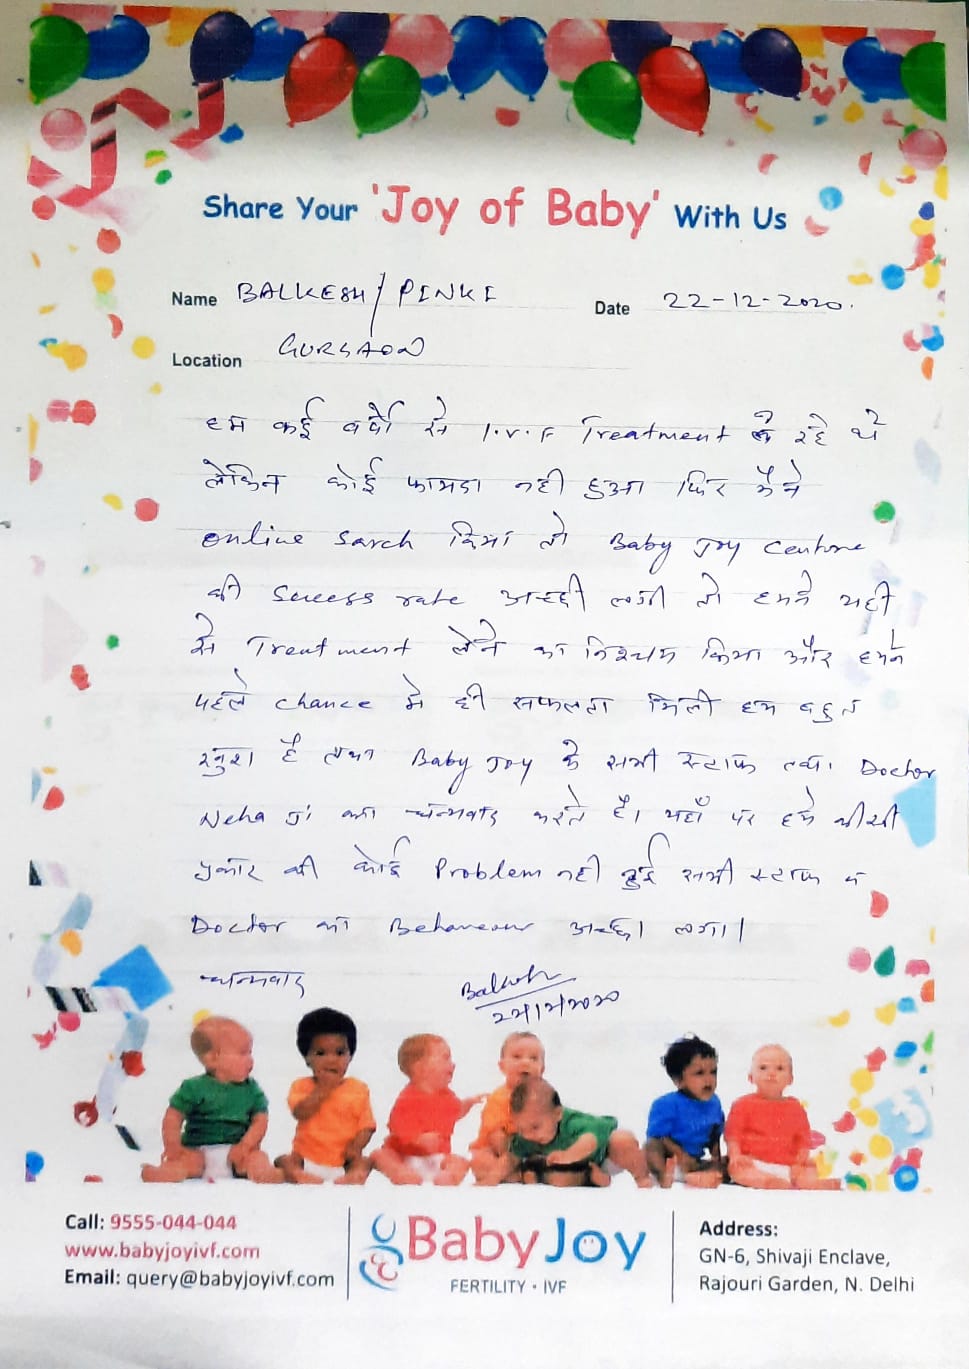 Share Your 'Joy of Baby' With Us
Name BALKESH / PINKI Date 22-12-2020.
Location GURGAON
हम कई वर्षो से I.V.F Treatment ले रहे थे
लेकिन कोई फायदा नही हुआ फिर मैने
online Sarch किया तो Baby Joy Centre
की Success rate अच्छी लगी तो हमने यही
से Treatment लेने का निश्चय किया और हमने
पहले chance मे ही सफलता मिली हम बहुत
खुश है तथा Baby Joy के सभी स्टाफ तथा Doctor
Neha Ji का धन्यवाद करते है। यहाँ पर हमे कीसी
प्रकार की कोई Problem नही हुई सभी स्टाफ व
Doctor का Behaveour अच्छा लगा।
धन्यवाद
Call: 9555-044-044
www.babyjoyivf.com
Email: query@babyjoyivf.com
Baby Joy
FERTILITY • IVF
Address:
GN-6, Shivaji Enclave,
Rajouri Garden, N. Delhi